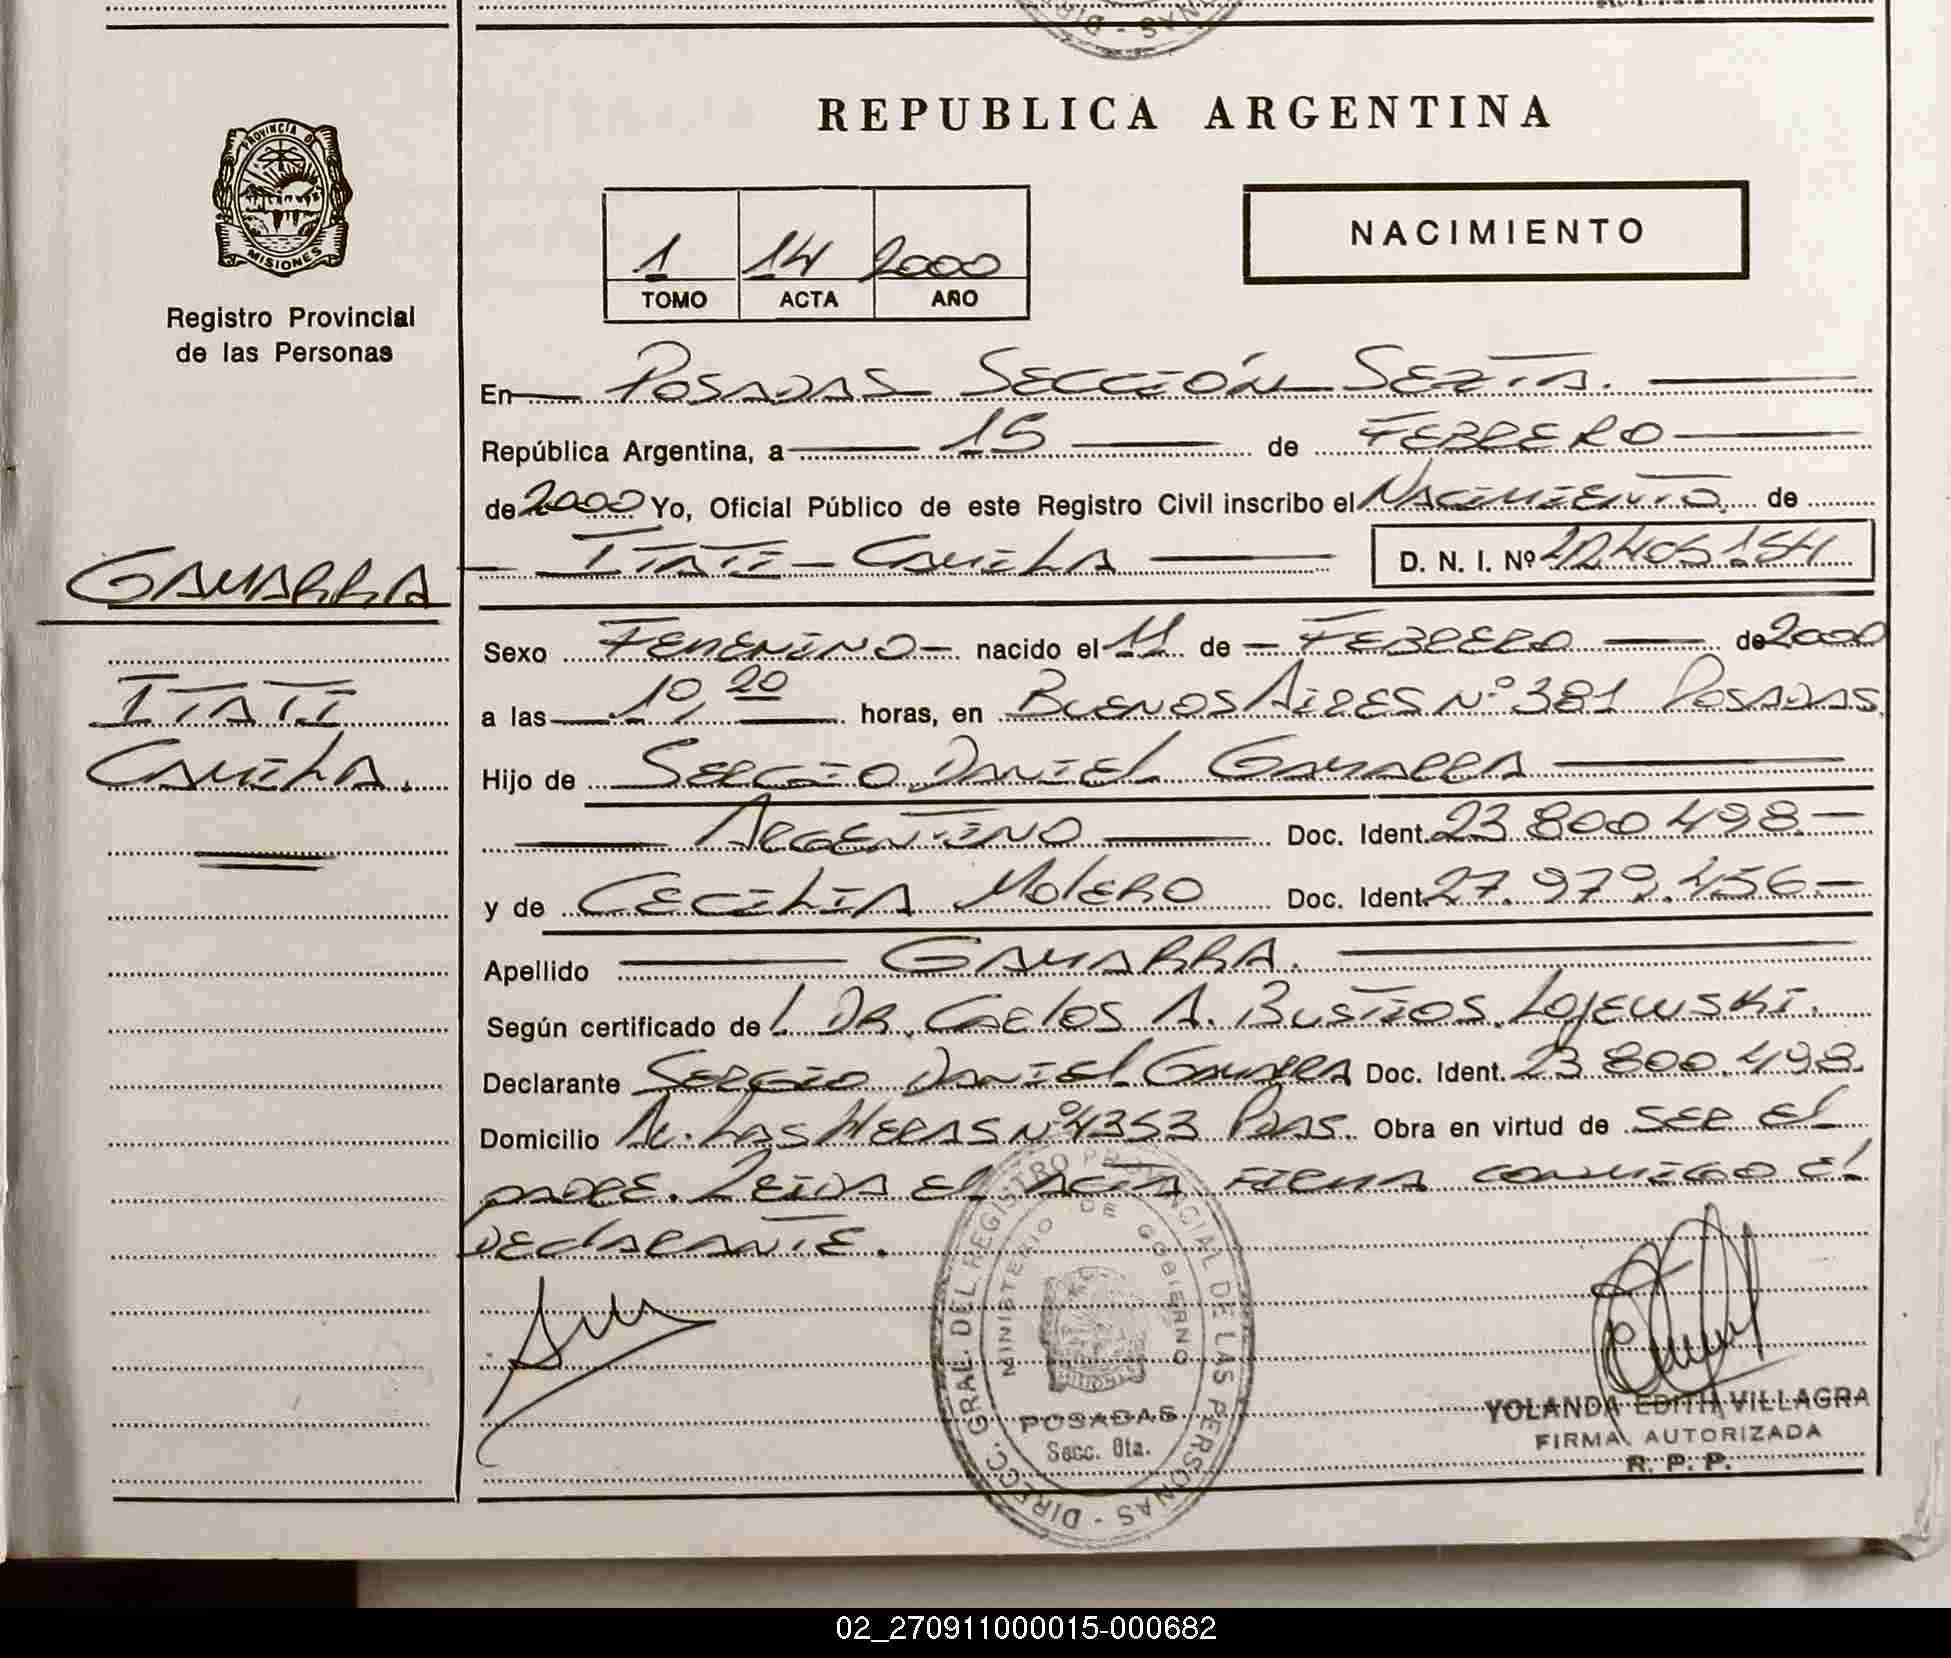 REPUBLICA ARGENTINA
PROVINCIA DE
MISIONES
Registro Provincial
de las Personas
1 14 2000
TOMO ACTA AÑO
NACIMIENTO
En POSADAS SECCIÓN SEXTA.
República Argentina, a 15 de FEBRERO
de 2000 Yo, Oficial Público de este Registro Civil inscribo el NACIMIENTO de
ITATI CAMILA D. N. I. Nº
GAMARRA
ITATI
CAMILA.
Sexo FEMENINO nacido el 11 de FEBRERO de 2000
a las 10,20 horas, en BUENOS AIRES Nº 381 POSADAS
Hijo de SERGIO DANIEL GAMARRA
ARGENTINO Doc. Ident. 23 800 498
y de CECILIA MOLERO Doc. Ident. 27.979.456
Apellido GAMARRA.
Según certificado de DR. CARLOS A. BUSTOS LOJEWSKI.
Declarante SERGIO DANIEL GAMARRA Doc. Ident. 23 800.498.
Domicilio AV. LAS HERAS Nº 4353 PDAS. Obra en virtud de SER EL
PADRE. LEIDA EL ACTA FIRMA CONMIGO EL
DECLARANTE.
DIRECC. GRAL. DEL REGISTRO PROVINCIAL DE LAS PERSONAS
MINISTERIO DE GOBIERNO
MISIONES
POSADAS
Secc. 6ta.
YOLANDA EDITH VILLAGRA
FIRMA AUTORIZADA
R. P. P.
02_270911000015-000682